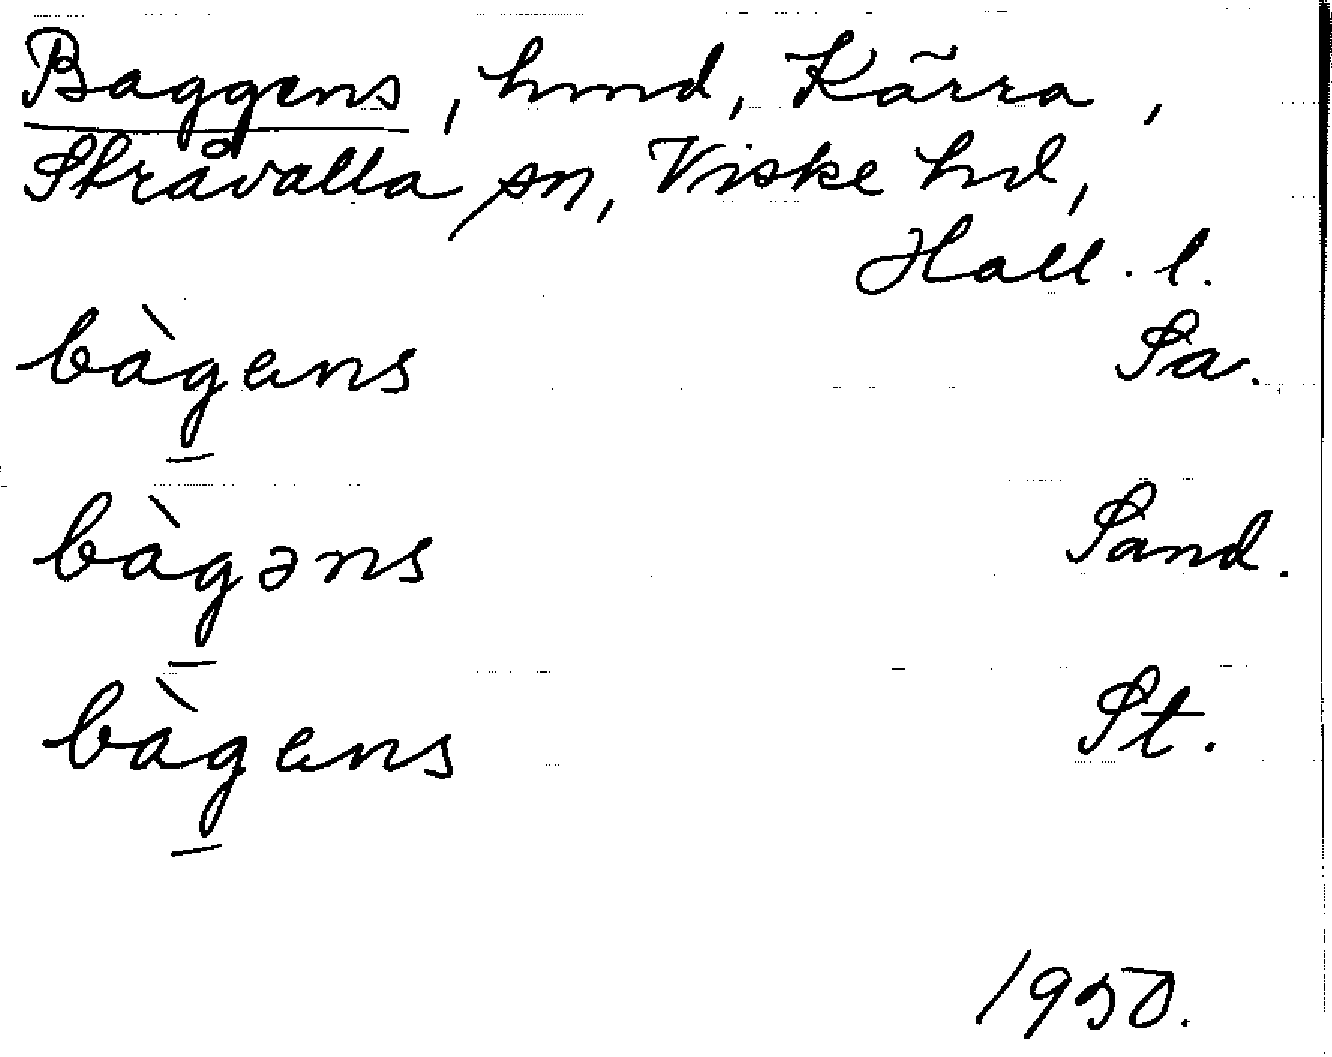 Baggens, hmd, Kärra,
Stråvalla sn, Viske hd,
Hall. l.
bàgens Sa.
bàgəns Sand.
bàgens St.
1950.